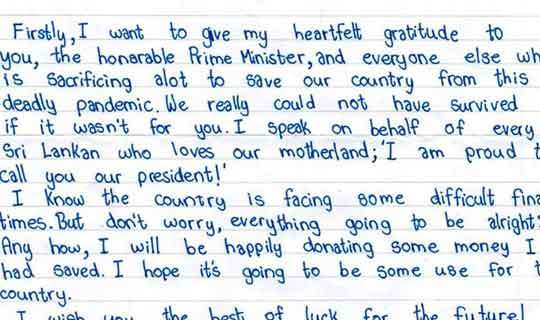 Firstly, I want to give my heartfelt gratitude to
you, the honorable Prime Minister, and everyone else wh
is sacrificing alot to save our country from this
deadly pandemic. We really could not have survived
if it wasn't for you. I speak on behalf of every
Sri Lankan who loves our motherland; 'I am proud t
call you our president!'
I Know the country is facing some difficult fina
times. But don't worry, everything going to be alright
Any how, I will be happily donating some money I
had saved. I hope it's going to be some use for t
country.
I wish you the best of luck for the future!